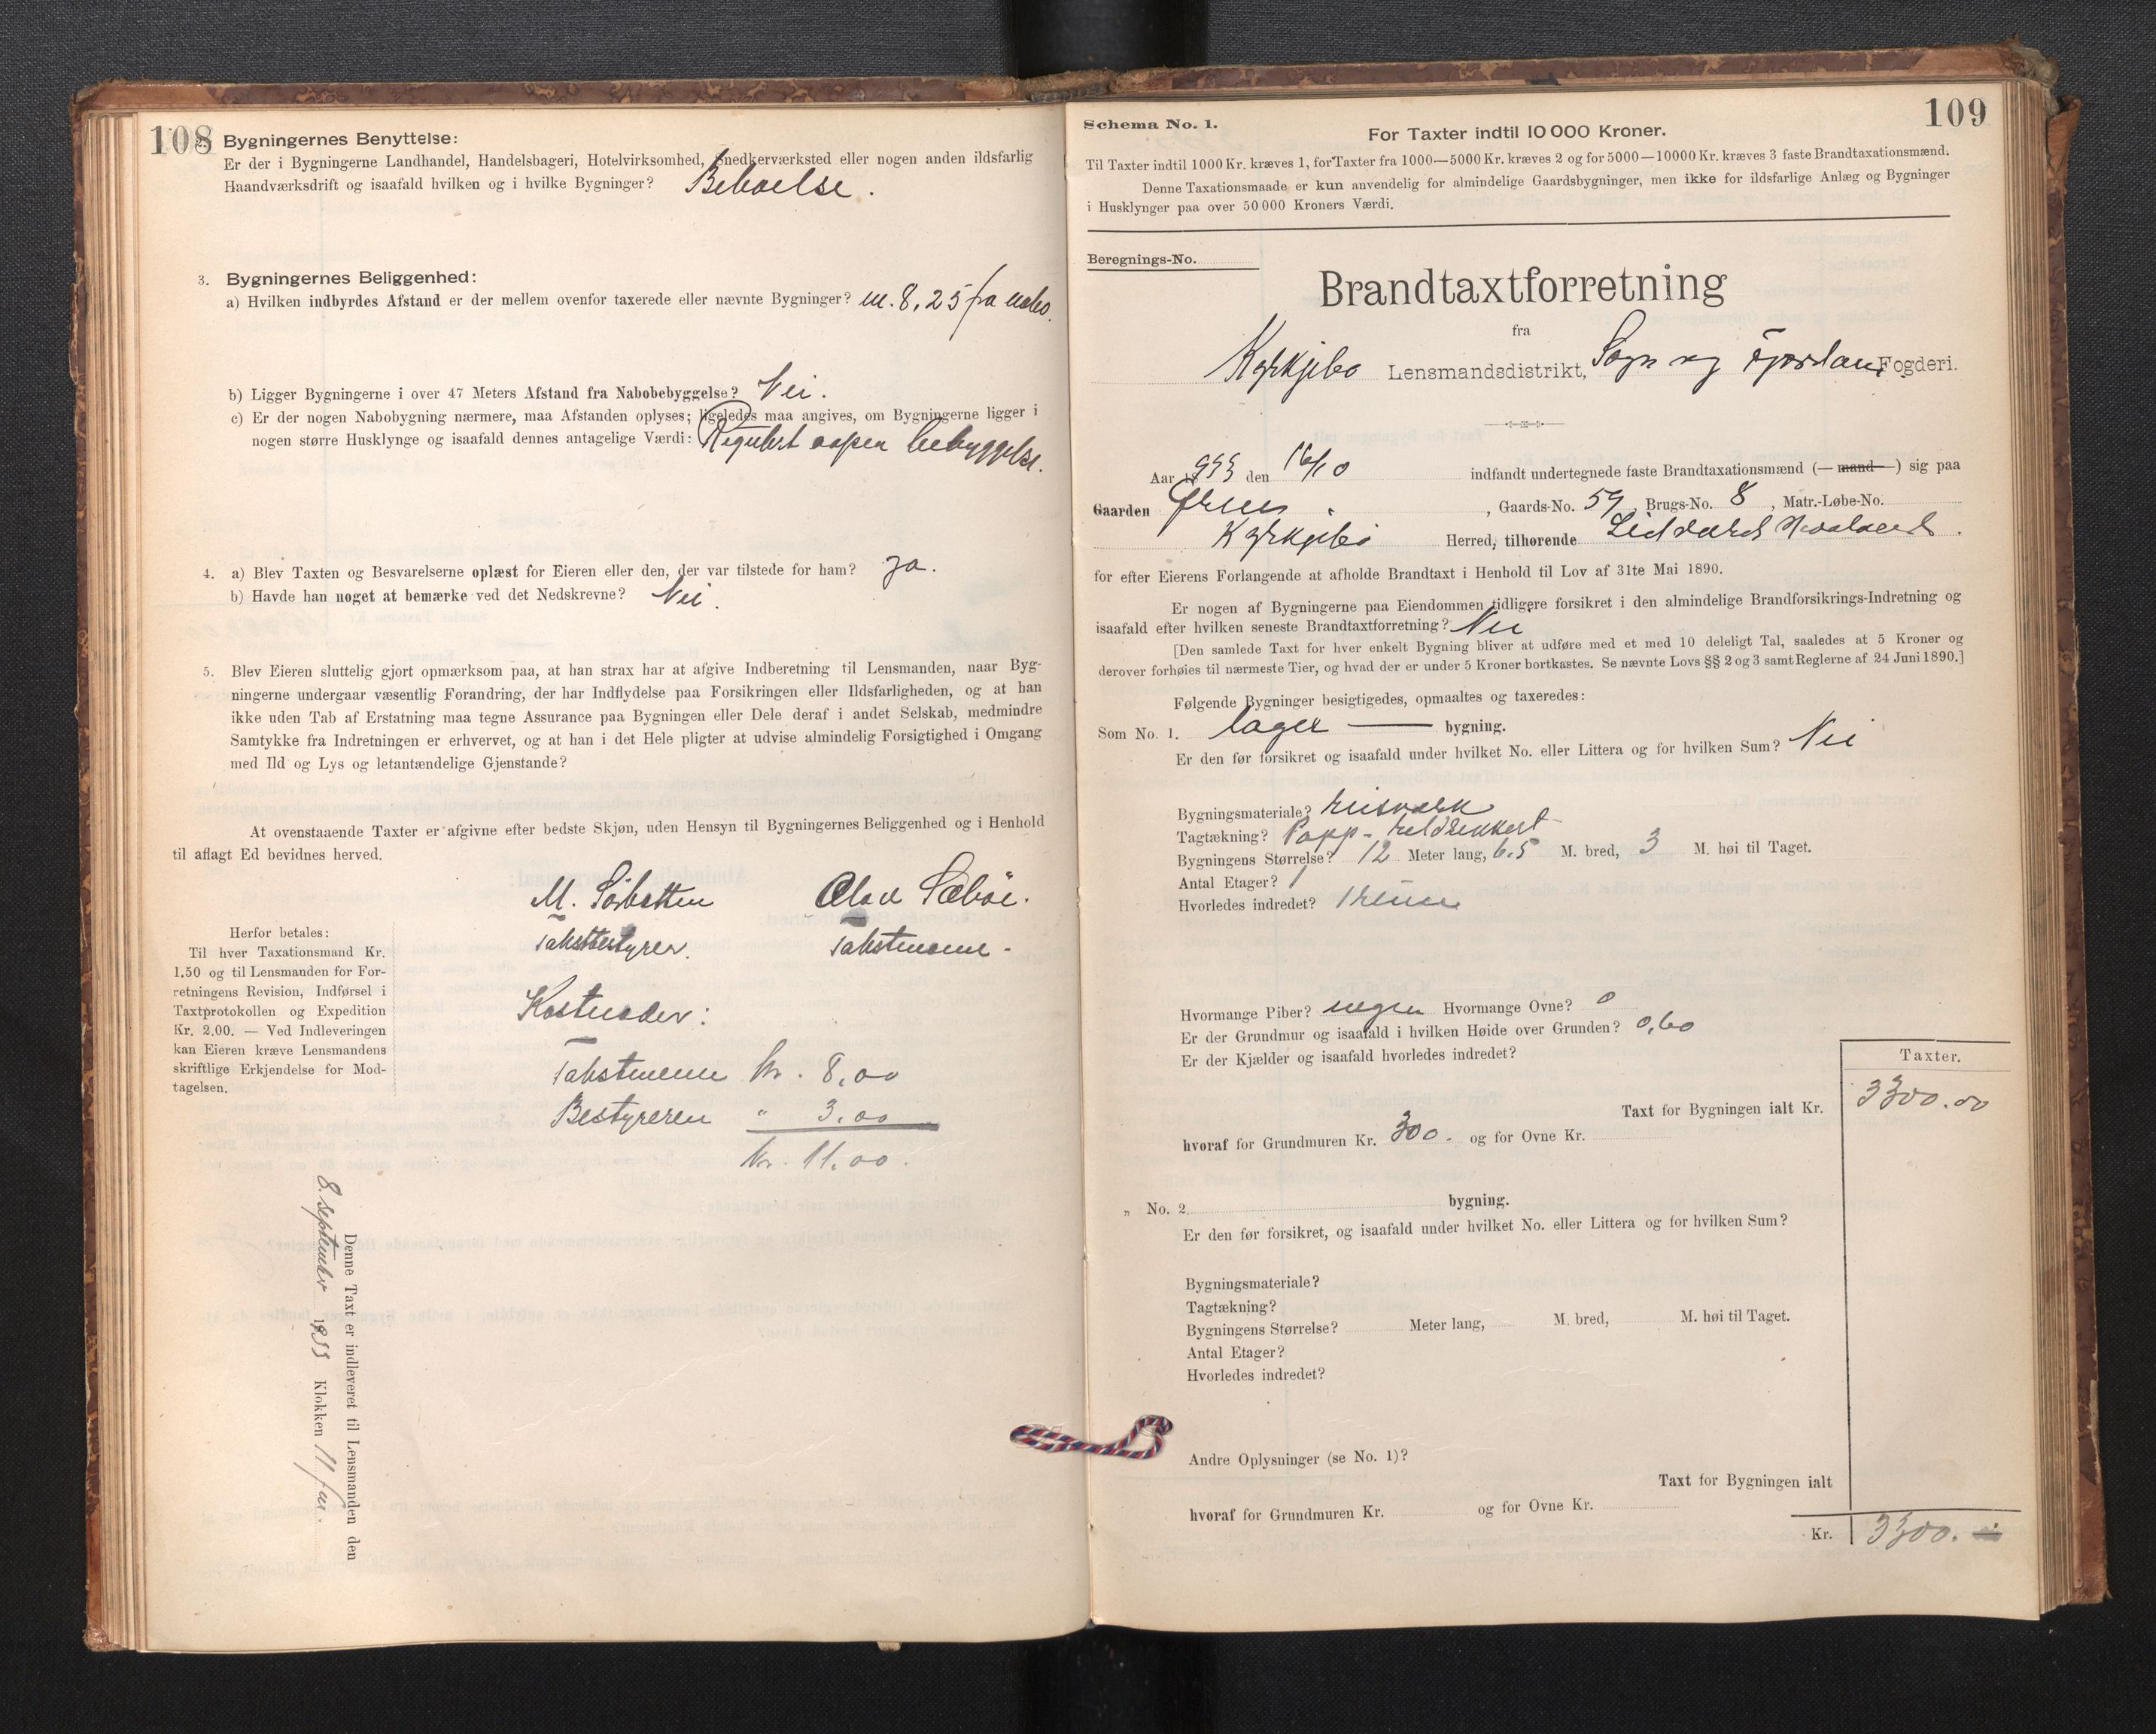 108
Bygningernes Benyttelse:
Er der i Bygningerne Landhandel, Handelsbageri, Hotelvirksomhed, Snedkerværksted eller nogen anden ildsfarlig
Haandværksdrift og isaafald hvilken og i hvilke Bygninger? Beboelse.
3. Bygningernes Beliggenhed:
a) Hvilken indbyrdes Afstand er der mellem ovenfor taxerede eller nævnte Bygninger? m. 8,25 fra nabo.
b) Ligger Bygningerne i over 47 Meters Afstand fra Nabobebyggelse? Nei.
c) Er der nogen Nabobygning nærmere, maa Afstanden oplyses; ligeledes maa angives, om Bygningerne ligger i
nogen større Husklynge og isaafald dennes antagelige Værdi: Regulert aapen bebyggelse.
4. a) Blev Taxten og Besvarelserne oplæst for Eieren eller den, der var tilstede for ham? Ja.
b) Havde han noget at bemærke ved det Nedskrevne? Nei.
5. Blev Eieren sluttelig gjort opmærksom paa, at han strax har at afgive Indberetning til Lensmanden, naar Byg-
ningerne undergaar væsentlig Forandring, der har Indflydelse paa Forsikringen eller Ildsfarligheden, og at han
ikke uden Tab af Erstatning maa tegne Assurance paa Bygningen eller Dele deraf i andet Selskab, medmindre
Samtykke fra Indretningen er erhvervet, og at han i det Hele pligter at udvise almindelig Forsigtighed i Omgang
med Ild og Lys og letantændelige Gjenstande?
At ovenstaaende Taxter er afgivne efter bedste Skjøn, uden Hensyn til Bygningernes Beliggenhed og i Henhold
til aflagt Ed bevidnes herved.
M. Sørbotten Olav Sæbøe.
Takstbestyrer. Takstmann.
Herfor betales:
Til hver Taxationsmand Kr.
1.50 og til Lensmanden for For-
retningens Revision, Indførsel i
Taxtprotokollen og Expedition
Kr. 2.00. — Ved Indleveringen
kan Eieren kræve Lensmandens
skriftlige Erkjendelse for Mod-
tagelsen.
Kostnader:
Takstmenn kr. 8,00
Bestyreren " 3,00
kr. 11.00.
Denne Taxt er indleveret til Lensmanden den
8. september 1933 Klokken 11 fm.
109
Schema No. 1.
For Taxter indtil 10 000 Kroner.
Til Taxter indtil 1000 Kr. kræves 1, for Taxter fra 1000—5000 Kr. kræves 2 og for 5000—10000 Kr. kræves 3 faste Brandtaxationsmænd.
Denne Taxationsmaade er kun anvendelig for almindelige Gaardsbygninger, men ikke for ildsfarlige Anlæg og Bygninger
i Husklynger paa over 50 000 Kroners Værdi.
Beregnings-No.
Brandtaxtforretning
fra
Kyrkjebø Lensmandsdistrikt, Sogn og Fjordane Fogderi.
Aar 1933 den 16/10 indfandt undertegnede faste Brandtaxationsmænd (— mand —) sig paa
Gaarden , Gaards-No. 59, Brugs-No. 8, Matr.-Løbe-No.
Kyrkjebø Herred, tilhørende
for efter Eierens Forlangende at afholde Brandtaxt i Henhold til Lov af 31te Mai 1890.
Er nogen af Bygningerne paa Eiendommen tidligere forsikret i den almindelige Brandforsikrings-Indretning og
isaafald efter hvilken seneste Brandtaxtforretning? Nei
[Den samlede Taxt for hver enkelt Bygning bliver at udføre med et med 10 deleligt Tal, saaledes at 5 Kroner og
derover forhøies til nærmeste Tier, og hvad der er under 5 Kroner bortkastes. Se nævnte Lovs §§ 2 og 3 samt Reglerne af 24 Juni 1890.]
Følgende Bygninger besigtigedes, opmaaltes og taxeredes:
Som No. 1. lager — bygning.
Er den før forsikret og isaafald under hvilket No. eller Littera og for hvilken Sum? Nei
Bygningsmateriale? reisverk
Tagtækning? Papp-
Bygningens Størrelse? 12 Meter lang, 6,5 M. bred, 3 M. høi til Taget.
Antal Etager? 1
Hvorledes indredet?
Hvormange Piber? ingen Hvormange Ovne? 0
Er der Grundmur og isaafald i hvilken Høide over Grunden? 0,60
Er der Kjælder og isaafald hvorledes indredet?
Taxter.
Taxt for Bygningen ialt Kr. 3300.00
hvoraf for Grundmuren Kr. 300. og for Ovne Kr.
„ No. 2 bygning.
Er den før forsikret, og isaafald under hvilket No. eller Littera og for hvilken Sum?
Bygningsmateriale?
Tagtækning?
Bygningens Størrelse? Meter lang, M. bred, M. høi til Taget.
Antal Etager?
Hvorledes indredet?
Andre Oplysninger (se No. 1)?
Taxt for Bygningen ialt
hvoraf for Grundmuren Kr. og for Ovne Kr.
Kr. 3300.